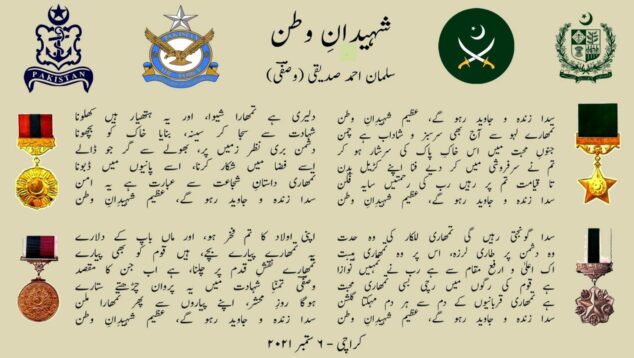 شہیدانِ وطن
سلمان احمد صدیقی (وصفی)
PAKISTAN
سدا زندہ و جاوید رہو گے، عظیم شہیدانِ وطن
تمھارے لہو سے آج بھی سرسبز و شاداب ہے چمن
جنونِ محبت میں اس خاکِ پاک کی سرشار ہو کر
تم نے سرفروشی میں کر دیے فنا اپنے کڑیل بدن
تا قیامت تم پر رہیں رب کی رحمتیں سایہ فگن
سدا زندہ و جاوید رہو گے، عظیم شہیدانِ وطن
دلیری ہے تمھارا شیوا، اور یہ ہتھیار ہیں کھلونا
شہادت سے سجا کر سینہ، بنایا خاک کو بچھونا
دشمن بری نظر زمیں پر، بھولے سے گر جو ڈالے
اسے فضا میں شکار کرنا، اسے پانیوں میں ڈبونا
تمھاری داستانِ شجاعت سے عبارت ہے یہ امن
سدا زندہ و جاوید رہو گے، عظیم شہیدانِ وطن
سدا گونجتی رہیں گی تمھاری للکار کی وہ حدت
وہ دشمن پر طاری لرزہ، اس پر وہ تمھاری ہیبت
اک اعلیٰ و ارفع مقام سے ہے رب نے تمہیں نوازا
ہے قوم کی رگوں میں رچی بسی تمھاری محبت
ہے تمھاری قربانیوں کے دم سے ہر دم مہکتا گلشن
سدا زندہ و جاوید رہو گے، عظیم شہیدانِ وطن
اپنی اولاد کا تم فخر ہو، اور ماں باپ کے دلارے
یہ تمھارے پیارے بچے، ہیں قوم کو بھی پیارے
تمھارے نقشِ قدم پر چلنا، ہے اب جن کا مقصد
وصفی تمنّا شہادت میں یہ پروان چڑھتے ستارے
ہوگا روزِ محشر، اپنے پیاروں سے پھر تمھارا ملن
سدا زندہ و جاوید رہو گے، عظیم شہیدانِ وطن
کراچی - ۶ ستمبر ۲۰۲۱